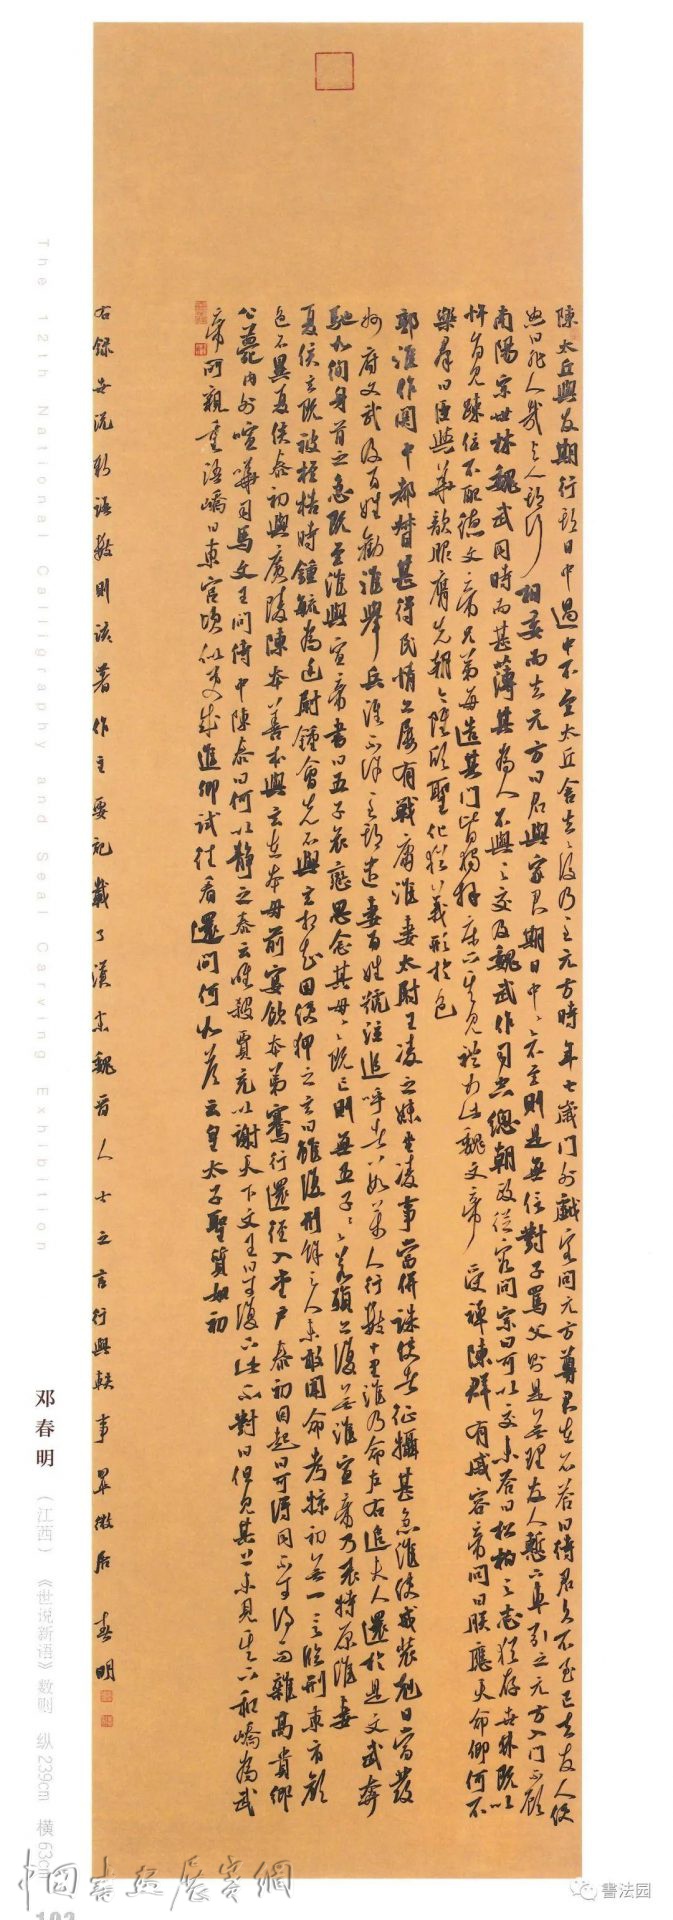 陳太丘與友期行期日中過中不至太丘舍去去後乃至元方時年七歲門外戲客問元方尊君在不答曰待君久不至已去友人便
怒曰非人哉與人期行相委而去元方曰君與家君期日中日中不至則是無信對子罵父則是無禮友人慚下車引之元方入門不顧
南陽宗世林魏武同時而甚薄其為人不與之交及魏武作司空總朝政從容問宗曰可以交未答曰松柏之志猶存世林既以
忤旨見疎位不配德文帝兄弟每造其門皆獨拜床下其見禮如此魏文帝受禪陳群有慼容帝問曰朕應天命卿何不
樂群曰臣與華歆服膺先朝今雖欣聖化猶義形於色
郭淮作關中都督甚得民情亦屢有戰庸淮妻太尉王凌之妹坐凌事當併誅使者征攝甚急淮使戒裝克日當發
州府文武及百姓勸淮舉兵淮不許至期遣妻百姓號泣追呼者數萬人行數十里淮乃命左右追夫人還於是文武奔
馳如徇身首之急既至淮與宣帝書曰五子哀戀思念其母其母既亡則無五子五子若殞亦復無淮宣帝乃表特原淮妻
夏侯玄既被桎梏時鍾毓為廷尉鍾會先不與玄相知因便狎之玄曰雖復刑餘之人未敢聞命考掠初無一言臨刑東市顏
色不異夏侯泰初與廣陵陳本善本與玄在本母前宴飲本弟騫行還徑入堂戶泰初因起曰可得同不可得而雜高貴鄉
公薨內外喧嘩司馬文王問侍中陳泰曰何以靜之泰云唯殺賈充以謝天下文王曰可復下此不對曰但見其上未見其下和嶠為武
帝所親重語嶠曰東宮頃似更成進卿試往看還問何如答云皇太子聖質如初
右錄世說新語數則該著作主要記載了漢末魏晉人士之言行與軼事 春明
The 12th National Calligraphy and Seal Carving Exhibition
邓春明 （江西）《世说新语》数则 纵239cm 横63cm
中國書法展賽網
書法园